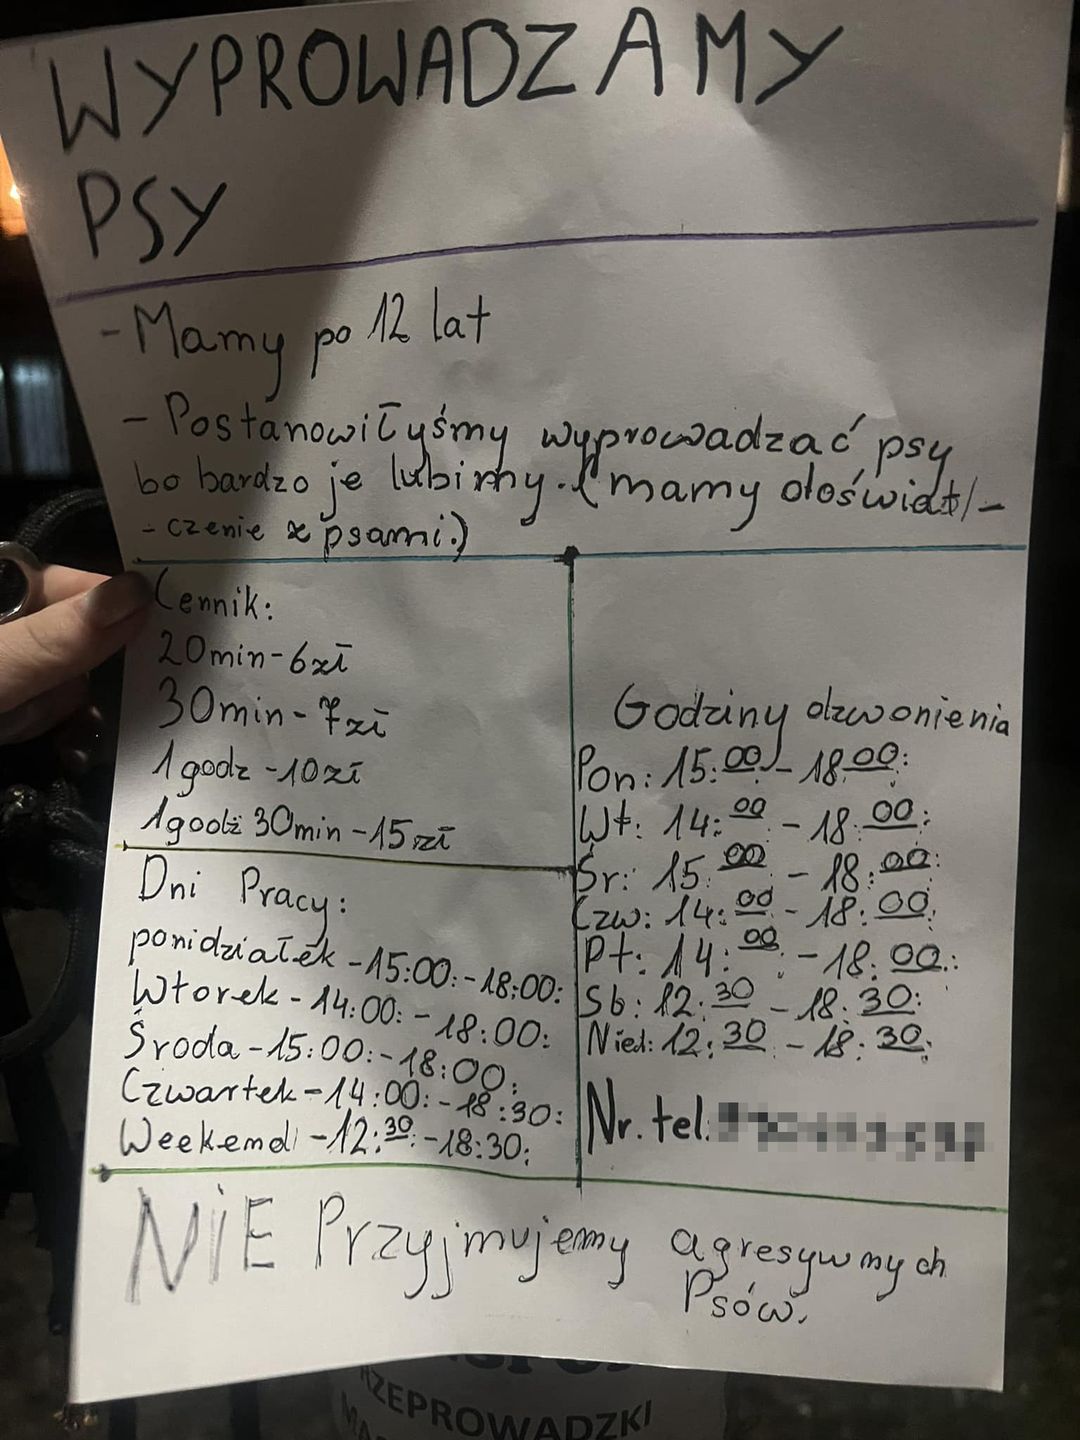 WYPROWADZAMY
PSY
- Mamy po 12 lat
- Postanowiłyśmy wyprowadzać psy
bo bardzo je lubimy. (mamy doświat/-
- czenie z psami.)
Cennik:
20min-6zł
30min-7zł
1godz-10zł
1godz 30min-15zł
Dni Pracy:
ponidziałek-15:00:-18:00:
Wtorek-14:00:-18:00:
Środa-15:00:-18:00:
Czwartek-14:00:-18:30:
Weekend-12:30:-18:30:
Godziny dzwonienia
Pon: 15:00-18:00:
Wt: 14:00-18:00:
Śr: 15:00-18:00:
Czw: 14:00-18:00:
Pt: 14:00:-18:00:
Sb: 12:30-18:30:
Nied: 12:30-18:30:
Nr. tel:
NIE Przyjmujemy agresywnych
Psów.
RZEPROWADZKI